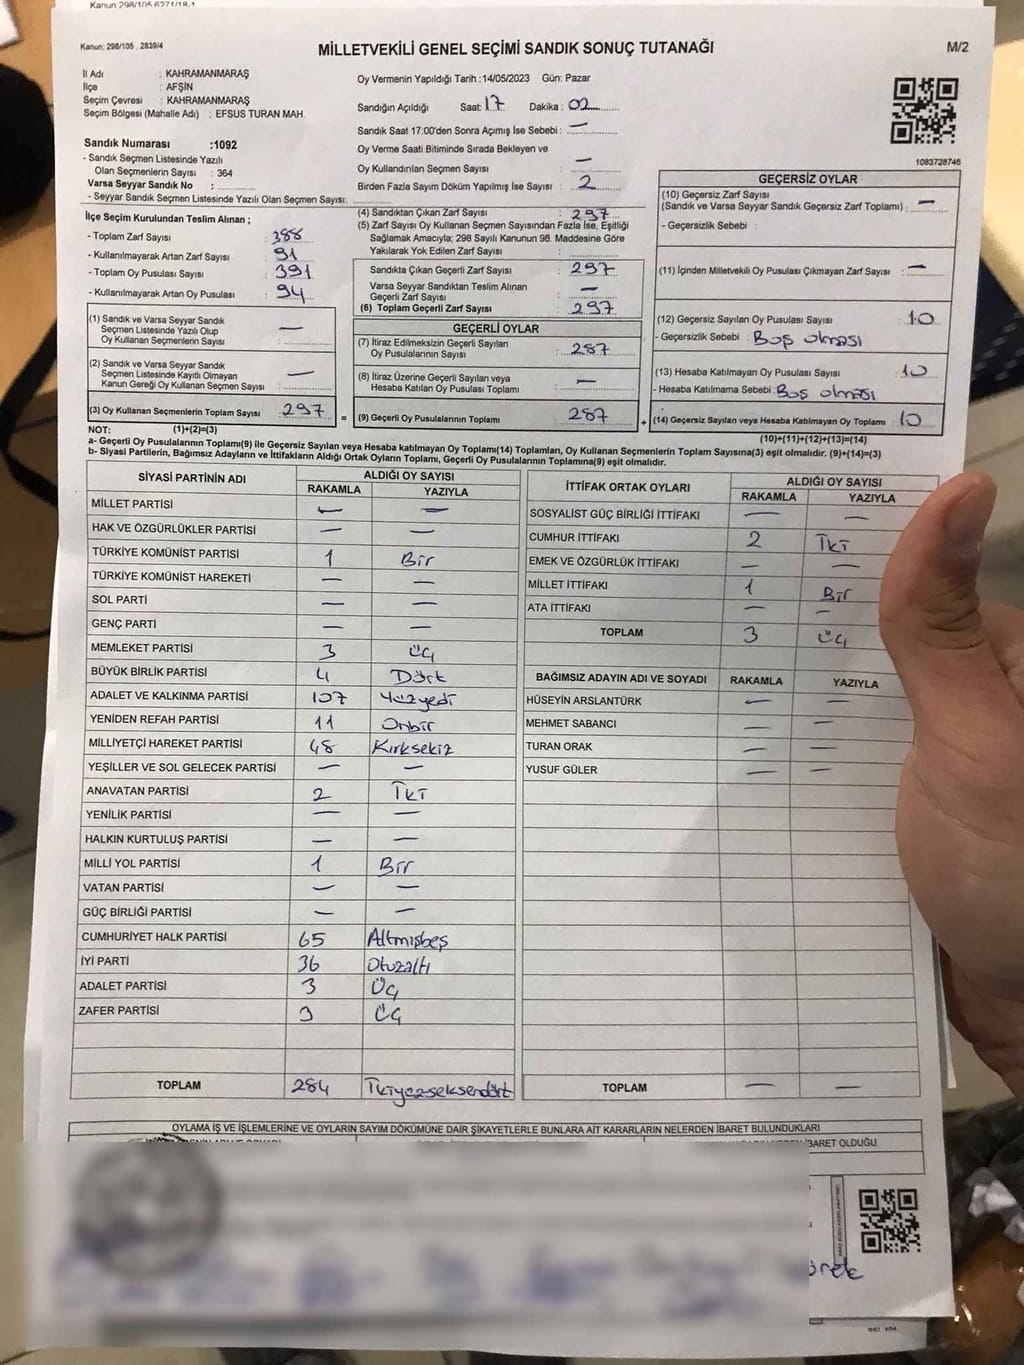 Kanun 298/105 6271/18-1
Kanun; 298/105 , 2839/4
MİLLETVEKİLİ GENEL SEÇİMİ SANDIK SONUÇ TUTANAĞI
M/2
İl Adı : KAHRAMANMARAŞ
İlçe : AFŞİN
Seçim Çevresi : KAHRAMANMARAŞ
Seçim Bölgesi (Mahalle Adı) : EFSUS TURAN MAH.
Oy Vermenin Yapıldığı Tarih :14/05/2023 Gün: Pazar
Sandığın Açıldığı Saat: 17 Dakika : 02
Sandık Saat 17:00'den Sonra Açımış İse Sebebi : —
Oy Verme Saati Bitiminde Sırada Bekleyen ve
Oy Kullandırılan Seçmen Sayısı : —
Birden Fazla Sayım Döküm Yapılmış İse Sayısı : 2
1083728746
Sandık Numarası :1092
- Sandık Seçmen Listesinde Yazılı
Olan Seçmenlerin Sayısı : 364
Varsa Seyyar Sandık No :
- Seyyar Sandık Seçmen Listesinde Yazılı Olan Seçmen Sayısı:
İlçe Seçim Kurulundan Teslim Alınan ;
- Toplam Zarf Sayısı : 388
- Kullanılmayarak Artan Zarf Sayısı : 91
- Toplam Oy Pusulası Sayısı : 391
- Kullanılmayarak Artan Oy Pusulası : 94
(1) Sandık ve Varsa Seyyar Sandık
Seçmen Listesinde Yazılı Olup
Oy Kullanan Seçmenlerin Sayısı : —
(2) Sandık ve Varsa Seyyar Sandık
Seçmen Listesinde Kayıtlı Olmayan
Kanun Gereği Oy Kullanan Seçmen Sayısı : —
(3) Oy Kullanan Seçmenlerin Toplam Sayısı : 297
(1)+(2)=(3)
(4) Sandıktan Çıkan Zarf Sayısı : 297
(5) Zarf Sayısı Oy Kullanan Seçmen Sayısından Fazla İse, Eşitliği
Sağlamak Amacıyla; 298 Sayılı Kanunun 98. Maddesine Göre
Yakılarak Yok Edilen Zarf Sayısı :
Sandıkta Çıkan Geçerli Zarf Sayısı : 297
Varsa Seyyar Sandıktan Teslim Alınan
Geçerli Zarf Sayısı : —
(6) Toplam Geçerli Zarf Sayısı : 297
GEÇERLİ OYLAR
(7) İtiraz Edilmeksizin Geçerli Sayılan
Oy Pusulalarının Sayısı : 287
(8) İtiraz Üzerine Geçerli Sayılan veya
Hesaba Katılan Oy Pusulaları Toplamı : —
= (9) Geçerli Oy Pusulalarının Toplamı : 287
GEÇERSİZ OYLAR
(10) Geçersiz Zarf Sayısı
(Sandık ve Varsa Seyyar Sandık Geçersiz Zarf Toplamı) : —
- Geçersizlik Sebebi :
(11) İçinden Milletvekili Oy Pusulası Çıkmayan Zarf Sayısı : —
(12) Geçersiz Sayılan Oy Pusulası Sayısı : 10
- Geçersizlik Sebebi : Boş olması
(13) Hesaba Katılmayan Oy Pusulası Sayısı : 10
- Hesaba Katılmama Sebebi : Boş olması
+ (14) Geçersiz Sayılan veya Hesaba Katılmayan Oy Toplamı : 10
(10)+(11)+(12)+(13)=(14)
NOT:
a- Geçerli Oy Pusulalarının Toplamı(9) ile Geçersiz Sayılan veya Hesaba katılmayan Oy Toplamı(14) Toplamları, Oy Kullanan Seçmenlerin Toplam Sayısına(3) eşit olmalıdır. (9)+(14)=(3)
b- Siyasi Partilerin, Bağımsız Adayların ve İttifakların Aldığı Ortak Oyların Toplamı, Geçerli Oy Pusulalarının Toplamına(9) eşit olmalıdır.
SİYASİ PARTİNİN ADI ALDIĞI OY SAYISI
RAKAMLA YAZIYLA
MİLLET PARTİSİ — —
HAK VE ÖZGÜRLÜKLER PARTİSİ — —
TÜRKİYE KOMÜNİST PARTİSİ 1 Bir
TÜRKİYE KOMÜNİST HAREKETİ — —
SOL PARTİ — —
GENÇ PARTİ — —
MEMLEKET PARTİSİ 3 Üç
BÜYÜK BİRLİK PARTİSİ 4 Dört
ADALET VE KALKINMA PARTİSİ 107 Yüzyedi
YENİDEN REFAH PARTİSİ 11 Onbir
MİLLİYETÇİ HAREKET PARTİSİ 48 Kırksekiz
YEŞİLLER VE SOL GELECEK PARTİSİ — —
ANAVATAN PARTİSİ 2 İki
YENİLİK PARTİSİ — —
HALKIN KURTULUŞ PARTİSİ — —
MİLLİ YOL PARTİSİ 1 Bir
VATAN PARTİSİ — —
GÜÇ BİRLİĞİ PARTİSİ — —
CUMHURİYET HALK PARTİSİ 65 Altmışbeş
İYİ PARTİ 36 Otuzaltı
ADALET PARTİSİ 3 Üç
ZAFER PARTİSİ 3 Üç
TOPLAM 284 İkiyüzseksendört
İTTİFAK ORTAK OYLARI ALDIĞI OY SAYISI
RAKAMLA YAZIYLA
SOSYALİST GÜÇ BİRLİĞİ İTTİFAKI — —
CUMHUR İTTİFAKI 2 İki
EMEK VE ÖZGÜRLÜK İTTİFAKI — —
MİLLET İTTİFAKI 1 Bir
ATA İTTİFAKI — —
TOPLAM 3 Üç
BAĞIMSIZ ADAYIN ADI VE SOYADI RAKAMLA YAZIYLA
HÜSEYİN ARSLANTÜRK — —
MEHMET SABANCI — —
TURAN ORAK — —
YUSUF GÜLER — —
TOPLAM — —
OYLAMA İŞ VE İŞLEMLERİNE VE OYLARIN SAYIM DÖKÜMÜNE DAİR ŞİKAYETLERLE BUNLARA AİT KARARLARIN NELERDEN İBARET BULUNDUKLARI
BARET OLDUĞU